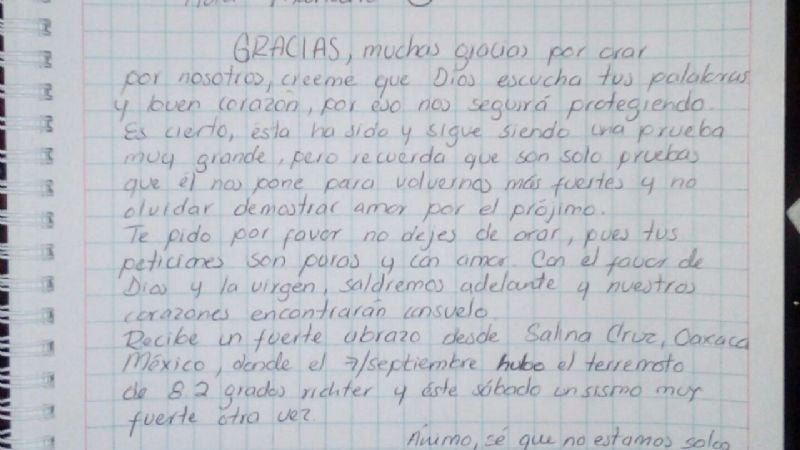 GRACIAS, muchas gracias por orar
por nosotros, creeme que Dios escucha tus palabras
y buen corazón, por eso nos seguirá protegiendo.
Es cierto, ésta ha sido y sigue siendo una prueba
muy grande, pero recuerda que son solo pruebas
que él nos pone para volvernos más fuertes y no
olvidar demostrar amor por el prójimo.
Te pido por favor no dejes de orar, pues tus
peticiones son puras y con amor. Con el favor de
Dios y la virgen, saldremos adelante y nuestros
corazones encontrarán consuelo.
Recibe un fuerte abrazo desde Salina Cruz, Oaxaca
México, donde el 7/septiembre hubo el terremoto
de 8.2 grados richter y éste sábado un sismo muy
fuerte otra vez.
Ánimo, sé que no estamos solos